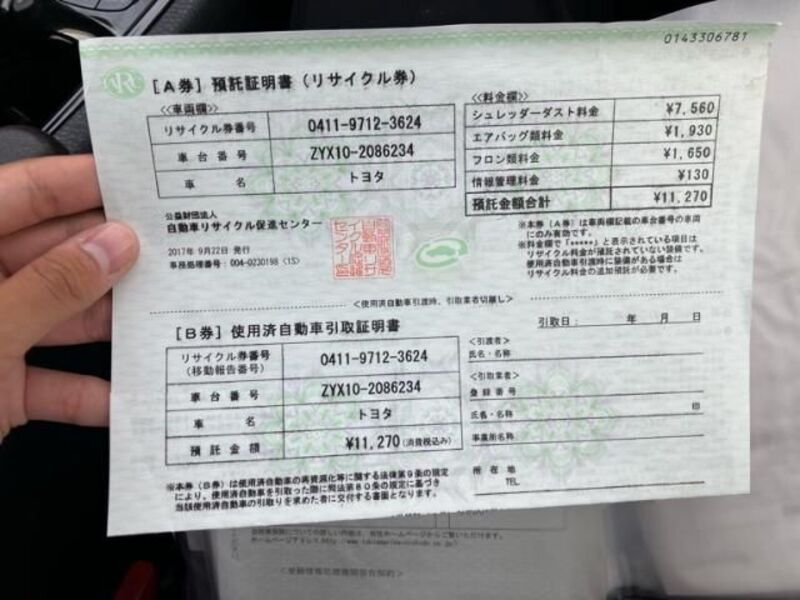 0143306781
ARC
[A券] 預託証明書 (リサイクル券)
<<車両欄>>
リサイクル券番号 0411-9712-3624
車台番号 ZYX10-2086234
車名 トヨタ
<<料金欄>>
シュレッダーダスト料金 ¥7,560
エアバッグ類料金 ¥1,930
フロン類料金 ¥1,650
情報管理料金 ¥130
預託金額合計 ¥11,270
公益財団法人
自動車リサイクル促進センター
2017年 9月22日 発行
事務処理番号: 004-0230198 (1S)
※本券(A券)は車両欄記載の車台番号の車両
にのみ有効です。
※料金欄で「*****」と表示されている項目は
リサイクル料金が預託されていない装備です。
使用済自動車引渡時に装備がある場合は
リサイクル料金の追加預託が必要です。
<使用済自動車引渡時、引取業者切離し>
[B券] 使用済自動車引取証明書
引取日: 年 月 日
リサイクル券番号
(移動報告番号) 0411-9712-3624
車台番号 ZYX10-2086234
車名 トヨタ
預託金額 ¥11,270 (消費税込み)
<引渡者>
氏名・名称
<引取業者>
登録番号
氏名・名称 印
事業所名称
所在地
TEL
※本券(B券)は使用済自動車の再資源化等に関する法律第9条の規定
により、使用済自動車を引取った際に同法第80条の規定に基づき
当該使用済自動車の引取りを求めた者に交付する書面となります。